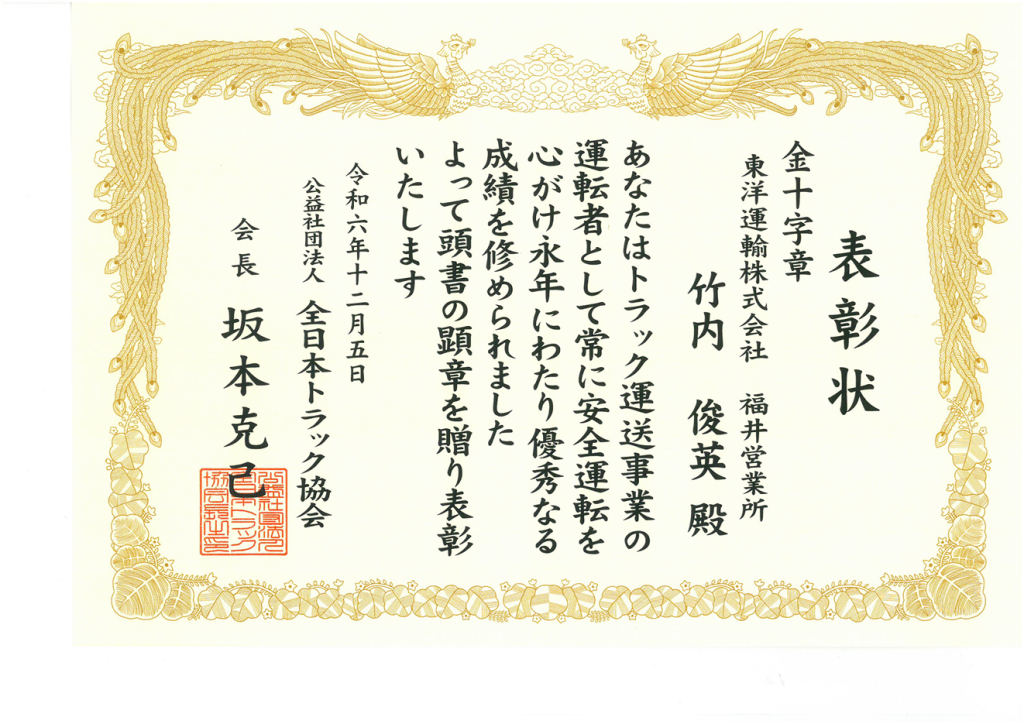 表彰状
金十字章
東洋運輸株式会社 福井営業所
竹内 俊英 殿
あなたはトラック運送事業の
運転者として常に安全運転を
心がけ永年にわたり優秀なる
成績を修められました
よって頭書の顕章を贈り表彰
いたします
令和六年十二月五日
公益社団法人 全日本トラック協会
会長 坂本克己
公益社団法人
全日本トラック
協会長之印